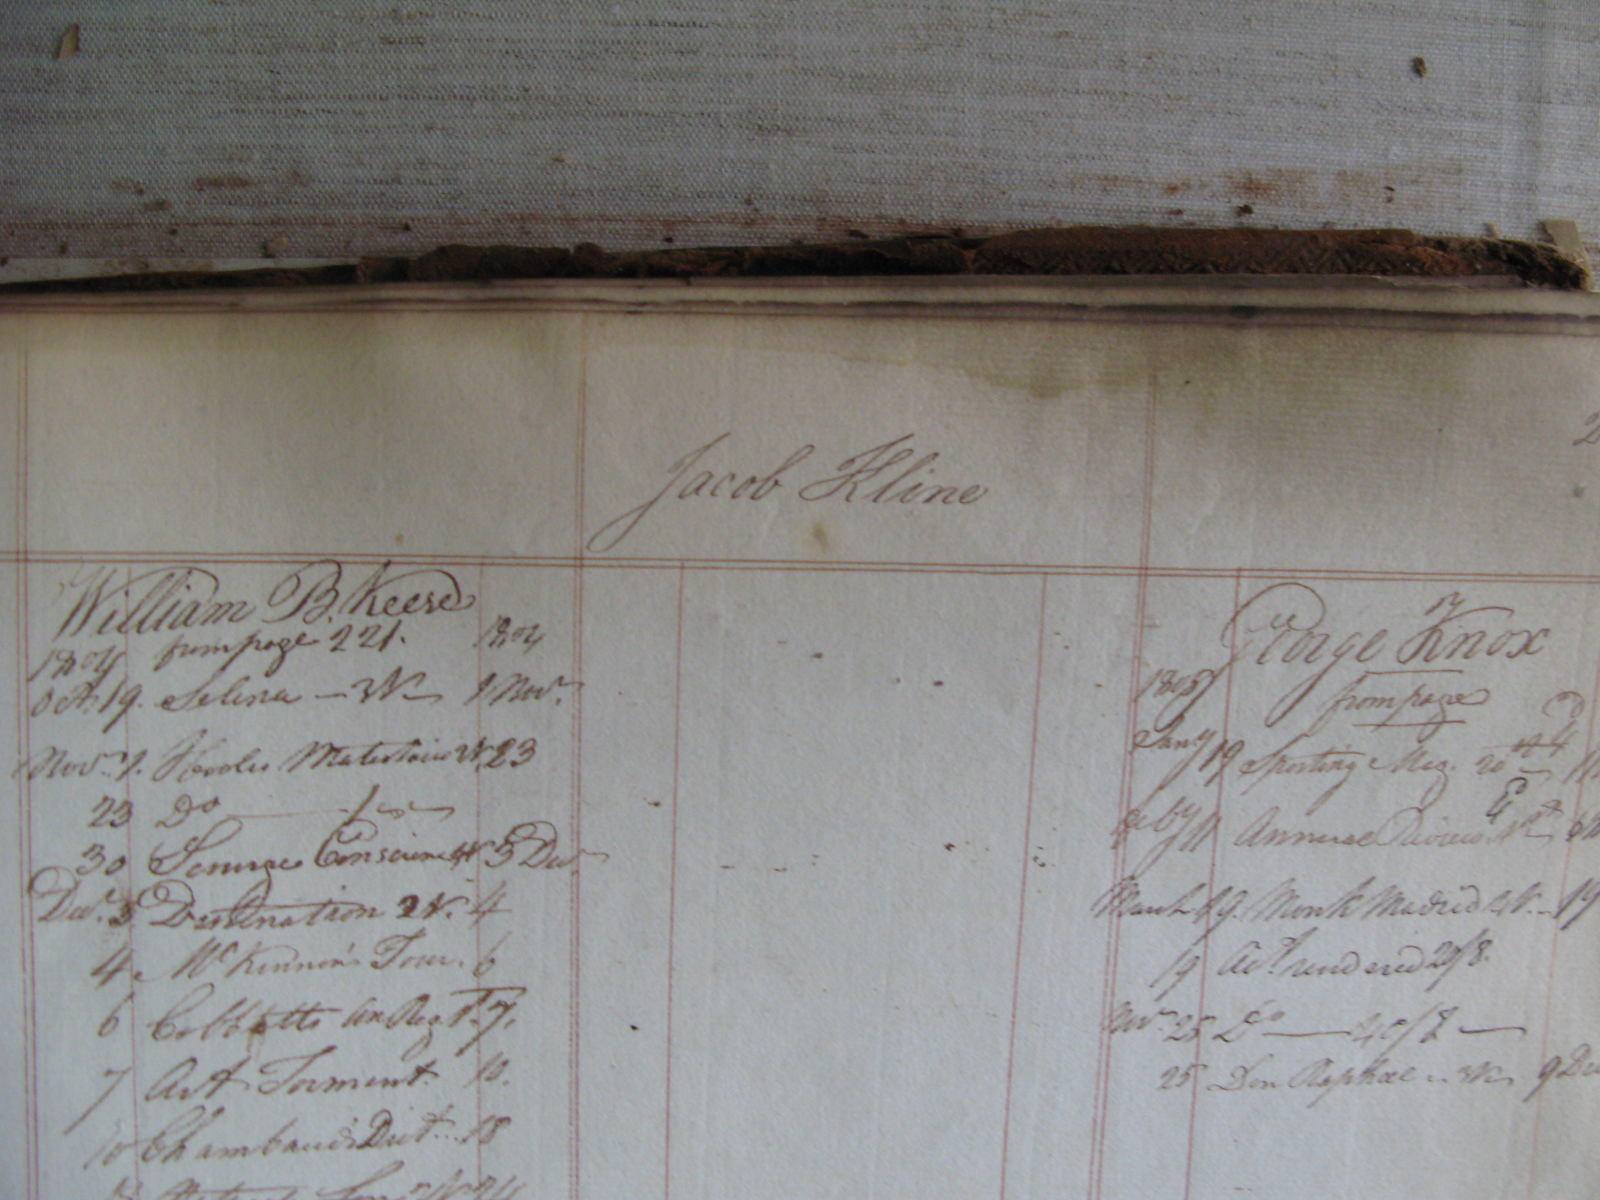 Jacob Kline
William B. Keese
from page 221.
1804 1804
Oct. 19. Selina — 3 V 1 Nov.
Nov. 1. Hooles Metastasio 23
23 Do
30 5 Dec.
Dec. 3 Destination 3 V. 4
4 McKinnin's Tour. 6
6 Cobbetts An Reg 7.
7 Art Torment. 10.
10 Chambauds Dict. 18
George Knox
1805 from page
Jany 19 Sporting Mag. 20
Feby 11 Annual Review
March 19. Monk Madrid 19
19 Act. rendered 20/8.
Nov. 25 Do
25 Don Raphael 3 V 9 De